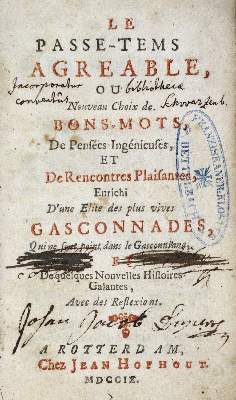 LE
PASSE-TEMS
AGREABLE,
OU
Incorporatus bibliotheca
conventus
Nouveau Choix de
BONS-MOTS,
De Pensées Ingénieuses,
ET
De Rencontres Plaisantes,
Enrichi
D'une Elite des plus vives
GASCONNADES,
Qui ne sont point dans le Gasconiana,
ET
De quelques Nouvelles Histoires
Galantes,
Avec des Reflexions.
Johan Jacob
A ROTTERDAM,
Chez JEAN HOFHOUT.
MDCCIX.